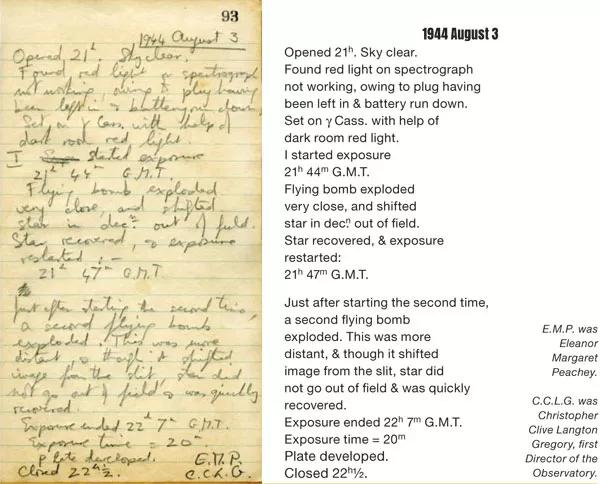 93
1944 August 3
Opened 21h. Sky clear.
Found red light on spectrograph
not working, owing to plug having
been left in & battery run down.
Set on γ Cass. with help of
dark room red light.
I started exposure
21h 44m G.M.T.
Flying bomb exploded
very close, and shifted
star in decn. out of field.
Star recovered, & exposure
restarted :-
21h 47m G.M.T
Just after starting the second time,
a second flying bomb
exploded. This was more
distant, & though it shifted
image from the slit, star did
not go out of field & was quickly
recovered.
Exposure ended 22h 7m G.M.T.
Exposure time = 20m
Plate developed. E.M.P.
Closed 22h½. C.C.L.G.
1944 August 3
Opened 21h. Sky clear.
Found red light on spectrograph
not working, owing to plug having
been left in & battery run down.
Set on γ Cass. with help of
dark room red light.
I started exposure
21h 44m G.M.T.
Flying bomb exploded
very close, and shifted
star in decn. out of field.
Star recovered, & exposure
restarted:
21h 47m G.M.T.
Just after starting the second time,
a second flying bomb
exploded. This was more
distant, & though it shifted
image from the slit, star did
not go out of field & was quickly
recovered.
Exposure ended 22h 7m G.M.T.
Exposure time = 20m
Plate developed.
Closed 22h½.
E.M.P. was
Eleanor
Margaret
Peachey.
C.C.L.G. was
Christopher
Clive Langton
Gregory, first
Director of the
Observatory.